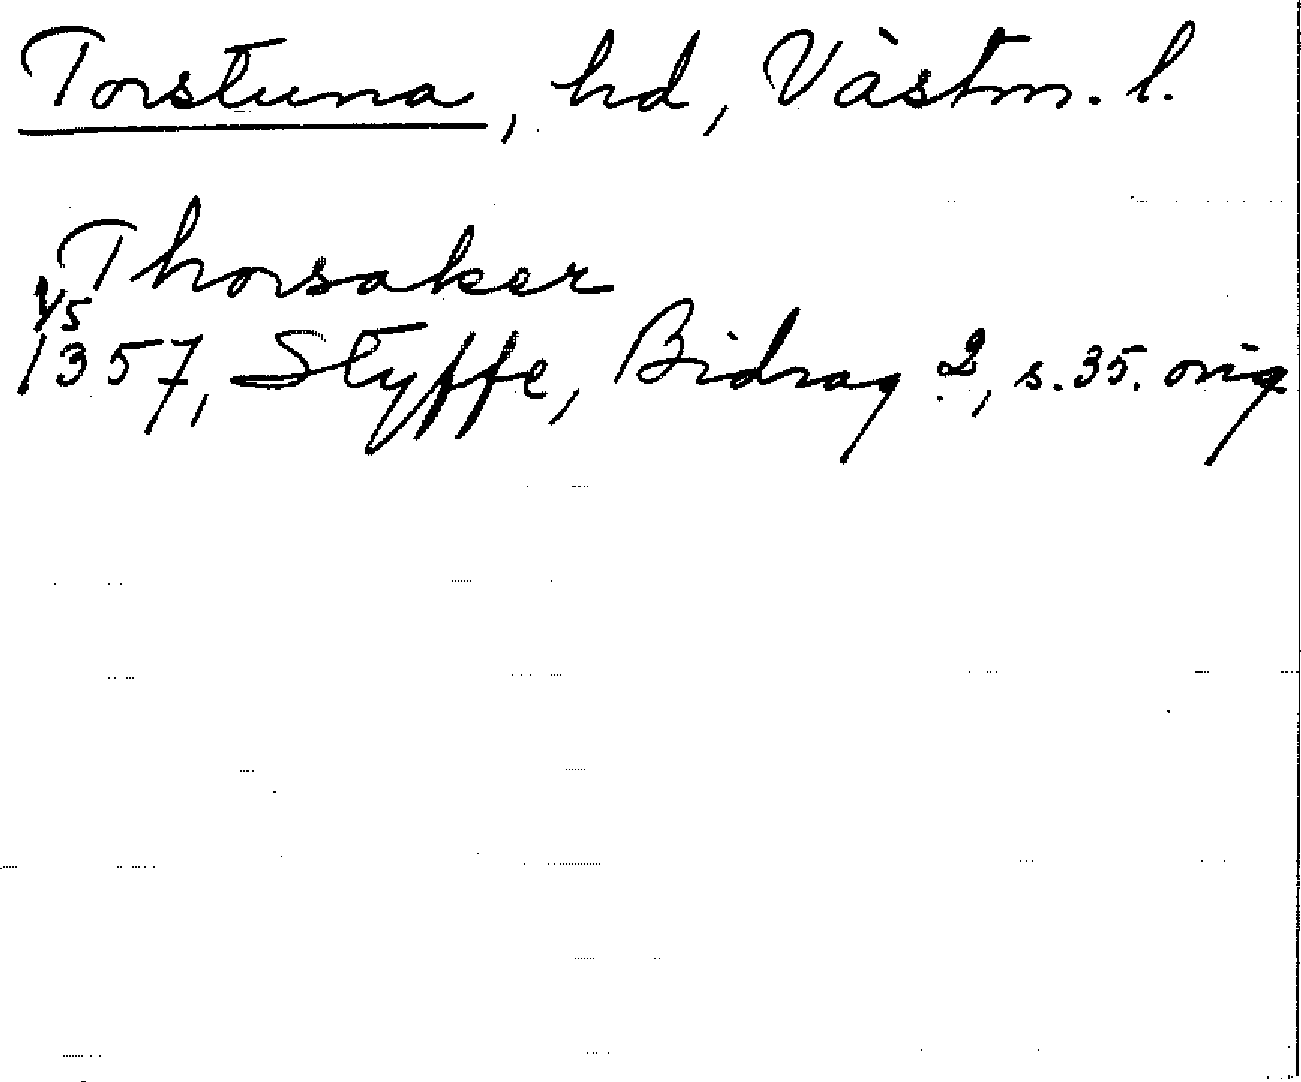 Torstuna, hd, Västm. l.
Thorsaker
1/5
1357, Styffe, Bidrag 2, s. 35. orig